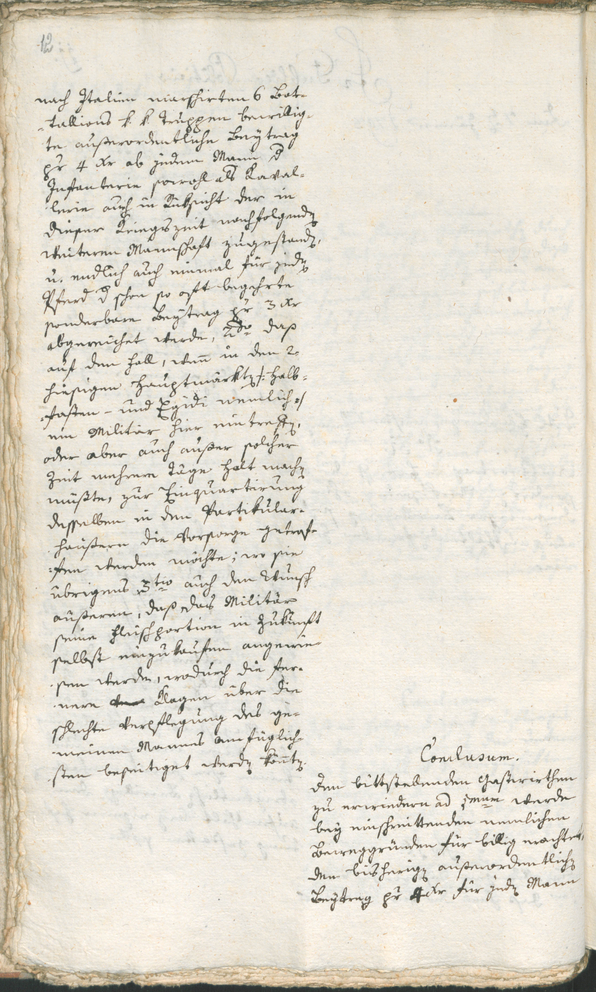 12
nach Italien marschirten 6 Bat-
tallions k k Truppen bewillig-
te außerordentliche Beytrag
pr 4 Xr ab jedem Mann d
Infanterie sowohl als Kaval-
lerie auch in Rüksicht der in
dieser Kriegszeit nachfolgendn
weiteren Mannschaft zugestandn,
u. endlich auch einmal für jedes
Pferd d schon so oft begehrte
sonderbare Beytrag pr 3 Xr
abgereichet werde, 2do daß
auf den Fall, wenn in den 2
hiesigen Hauptmärktn /: Halb-
fasten- und Egidi nemlich :/
ein Militär hier eintreffn,
oder aber auch außer solcher
Zeit mehrere Täge halt machn
müßte, zur Einquartierung
desselben in den Partikular-
häußern die Vorsorge getrof-
fen werden möchte; wo sie
übrigens 3tio auch den Wunsch
äußeren, daß das Militär
seine Fleischportion in Zukunft
selbst einzukaufen angewie-
sen werde, wodurch die fer-
nere Klagen über die
schlechte Verpflegung des ge-
meinen Mannes am füglich-
sten beseitiget werdn könte.
Conclusum.
Den bittstehenden Gastwirthen
zu erwiedern ad 1mum werde
bey einschreittenden nemlichen
Beweggründen für billig erachtet,
den bisherign außerordentlichn
Beytrag pr 4 Xr für jedn Mann